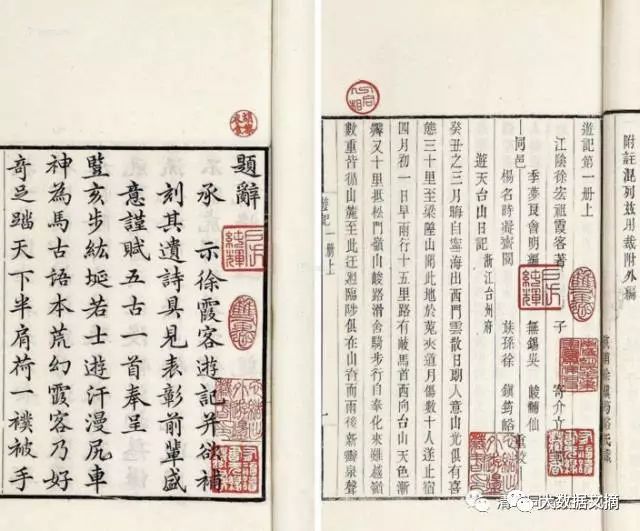 題辭
承 示徐霞客遊記并欲補
刻其遺詩具見表彰前輩盛
意謹賦五古一首奉呈
豎亥步紘埏若士遊汗漫尻車
神為馬古語本荒幻霞客乃好
奇足踏天下半肩荷一襆被手
附註混列兹用裁附外編
遊記第一册上
江陰徐宏祖霞客著 子 寄介立
季夢良會明編 無錫吳 峻 仙
同邑 重校
楊名時凝齋閱 族孫徐 鎮筠峪
遊天台山日記 浙江台州府
癸丑之三月晦自寧海出西門雲散日朗人意山光俱有喜
態三十里至梁隍山聞此地於菟夾道月傷數十人遂止宿
四月初一日早雨行十五里路有岐馬首西向台山天色漸
霽又十里抵松門嶺山峻路滑舍騎步行自奉化來雖越嶺
數重皆循山麓至此迂迴臨陟俱在山脊而雨後新霽泉聲
遊記 一册上
大数据文摘